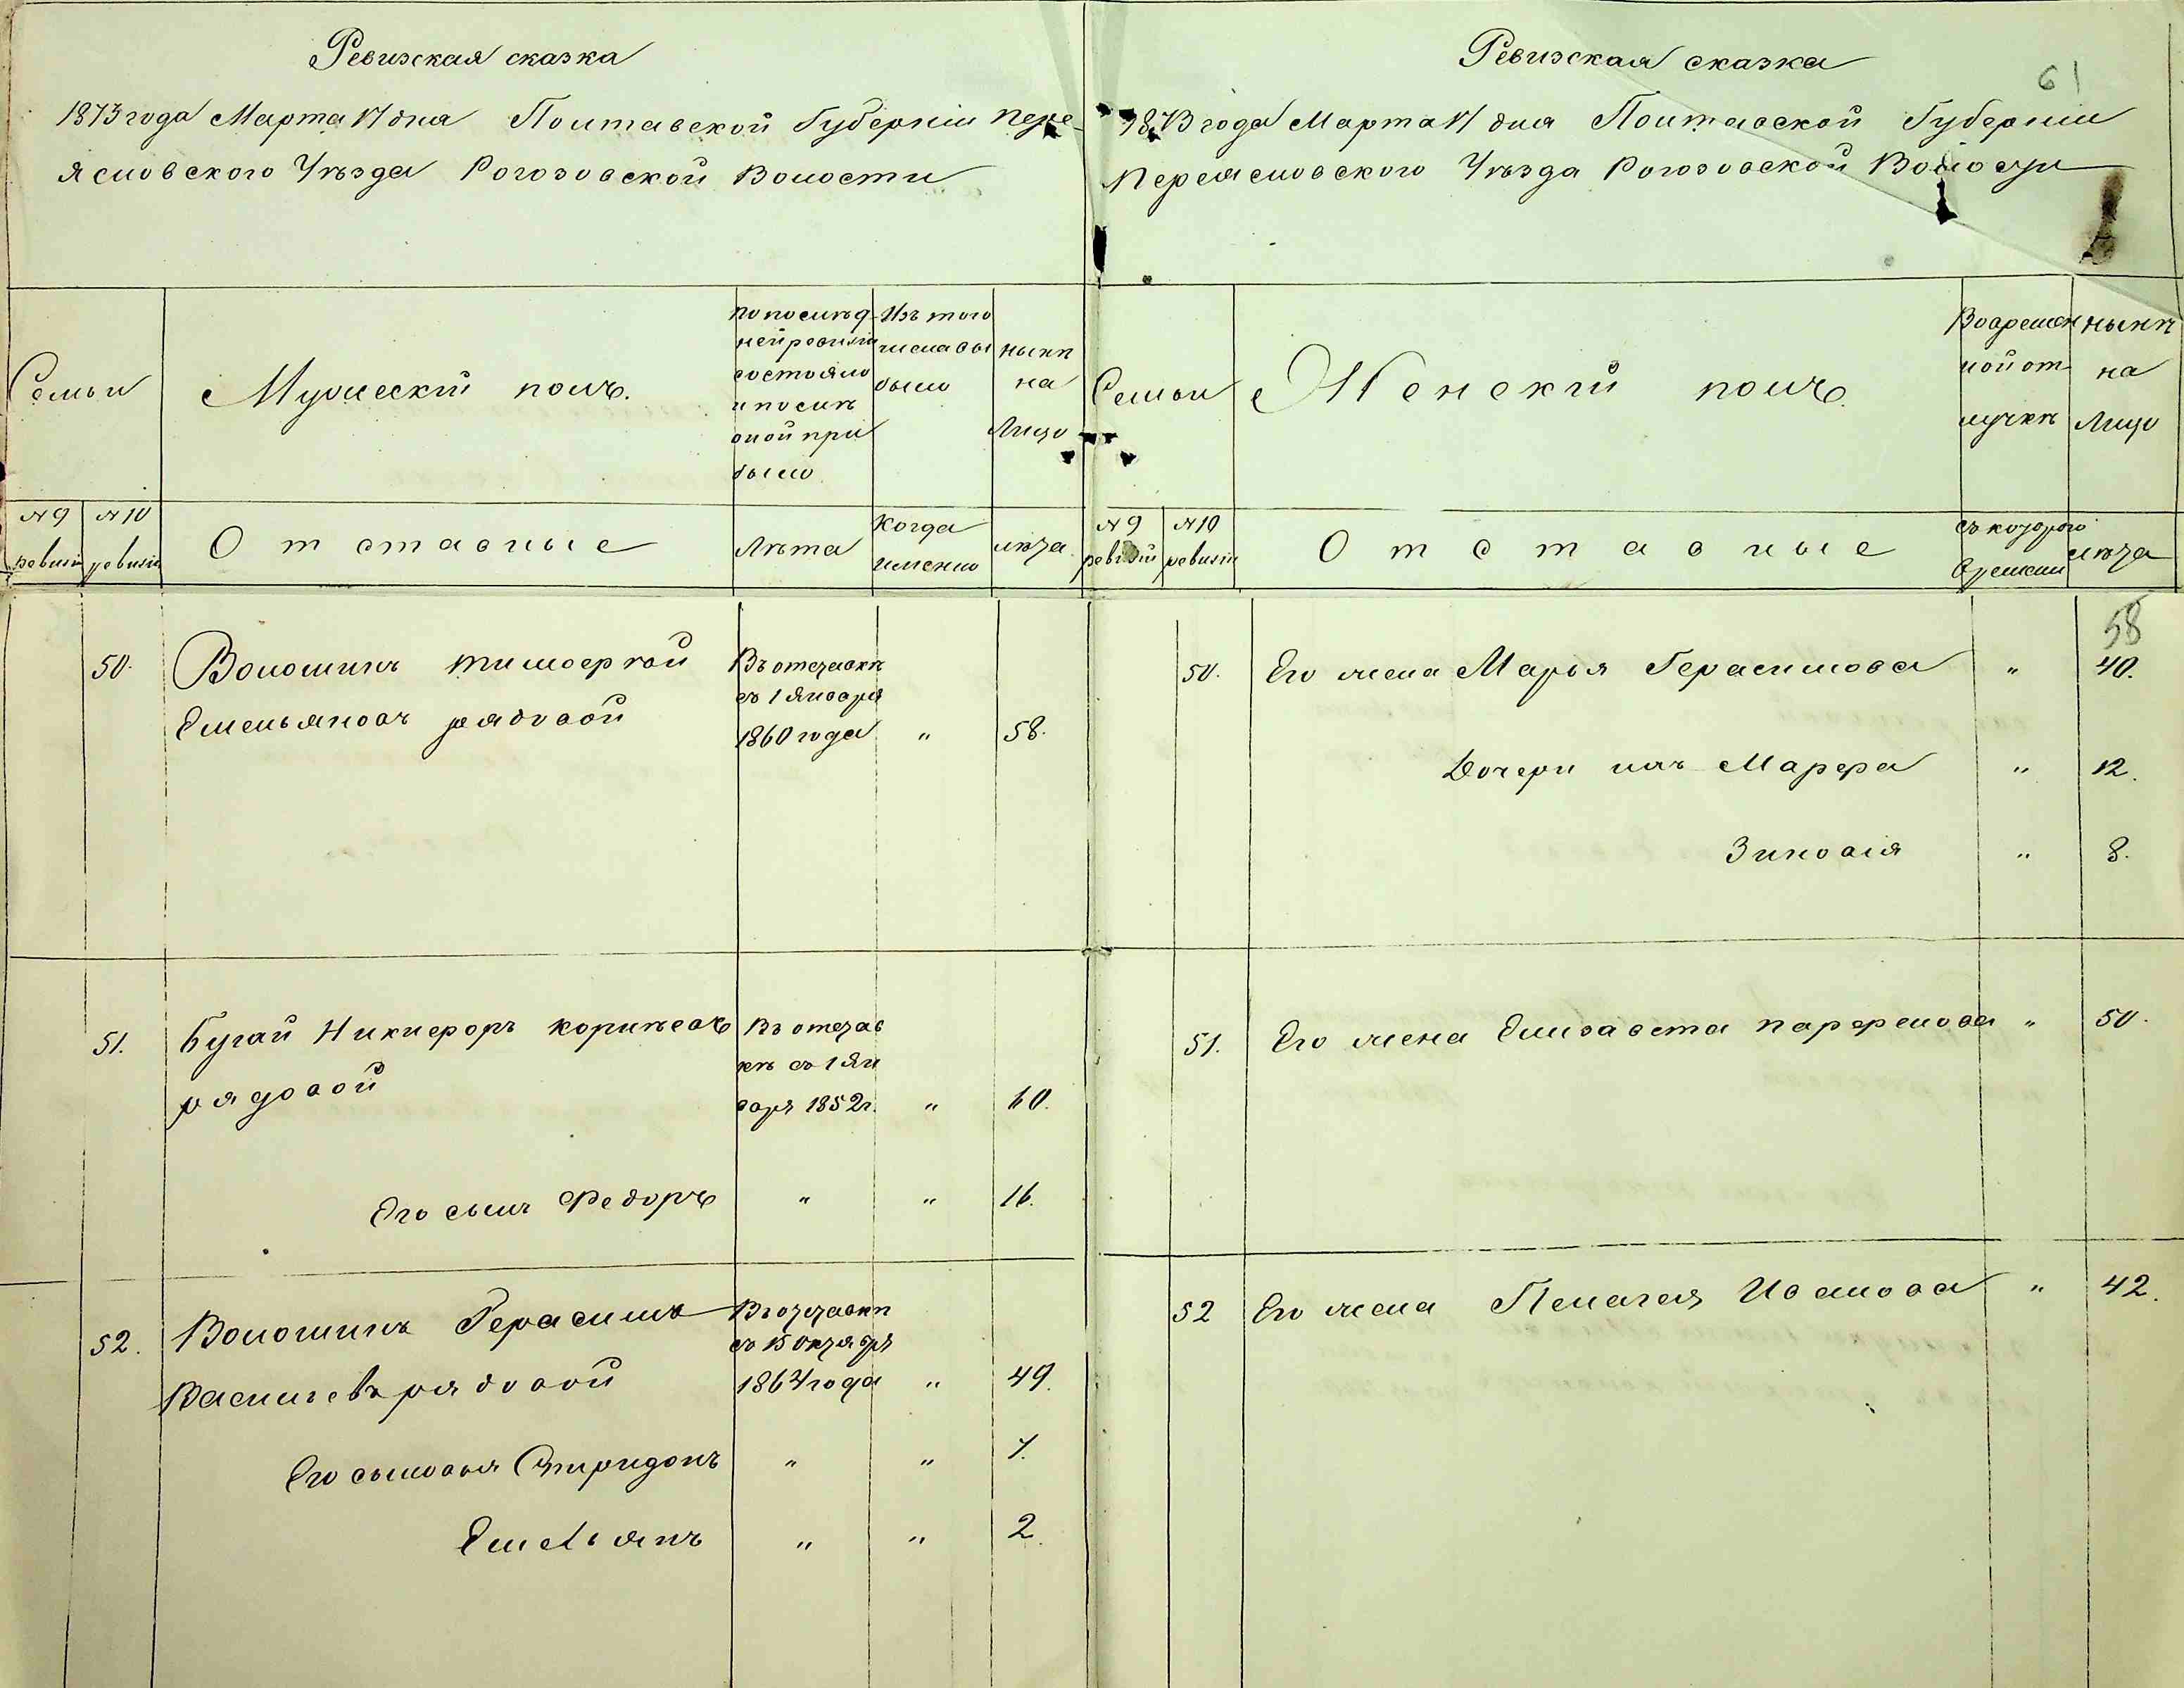 Ревизская сказка
1873 года Марта 17 дня Полтавской Губерніи Пере-
яслов­ского Уѣзда Рогозовской Волости
Семьи
Мужескій полъ.
По послѣд-
ней ревизіи
состояло
и послѣ
оной при
было
Изъ того
числа вы
было
нынѣ
на
Лицо
№ 9
ревизіи
№ 10
ревизіи
Отставные
Лѣта
Когда
именно
лѣта
50.
Волошинъ Тимофей
Емельяновъ рядовой
Въ отставкѣ
съ 1 Января
1860 года
"
58.
51.
Бугай Никифоръ Корнѣевъ
рядовой
Въ отстав
кѣ съ 1 Ян
варя 1852 г.
"
60.
Его сынъ Федоръ
"
"
16.
52.
Волошинъ Герасимъ
Васильевъ рядовой
Въ отставкѣ
съ 15 Октября
1864 года
"
49.
Его сыновья Спиридонъ
"
"
7.
Емельянъ
"
"
2.
Ревизская сказка
61
1873 года Марта 17 дня Полтавской Губерніи
Переясловского Уѣзда Рогозовской Волости
Семьи
Женскій полъ.
Во времен
ной от-
лучкѣ
нынѣ
на
Лицо
№ 9
ревизіи
№ 10
ревизіи
Отставные
съ которого
времени
лѣта
58
50.
Его жена Марья Герасимова
"
40.
Дочери ихъ Марфа
"
12.
Зиновія
"
8.
51.
Его жена Елизавета Парфенова
"
50.
52
Его жена Пелагея Иванова
"
42.